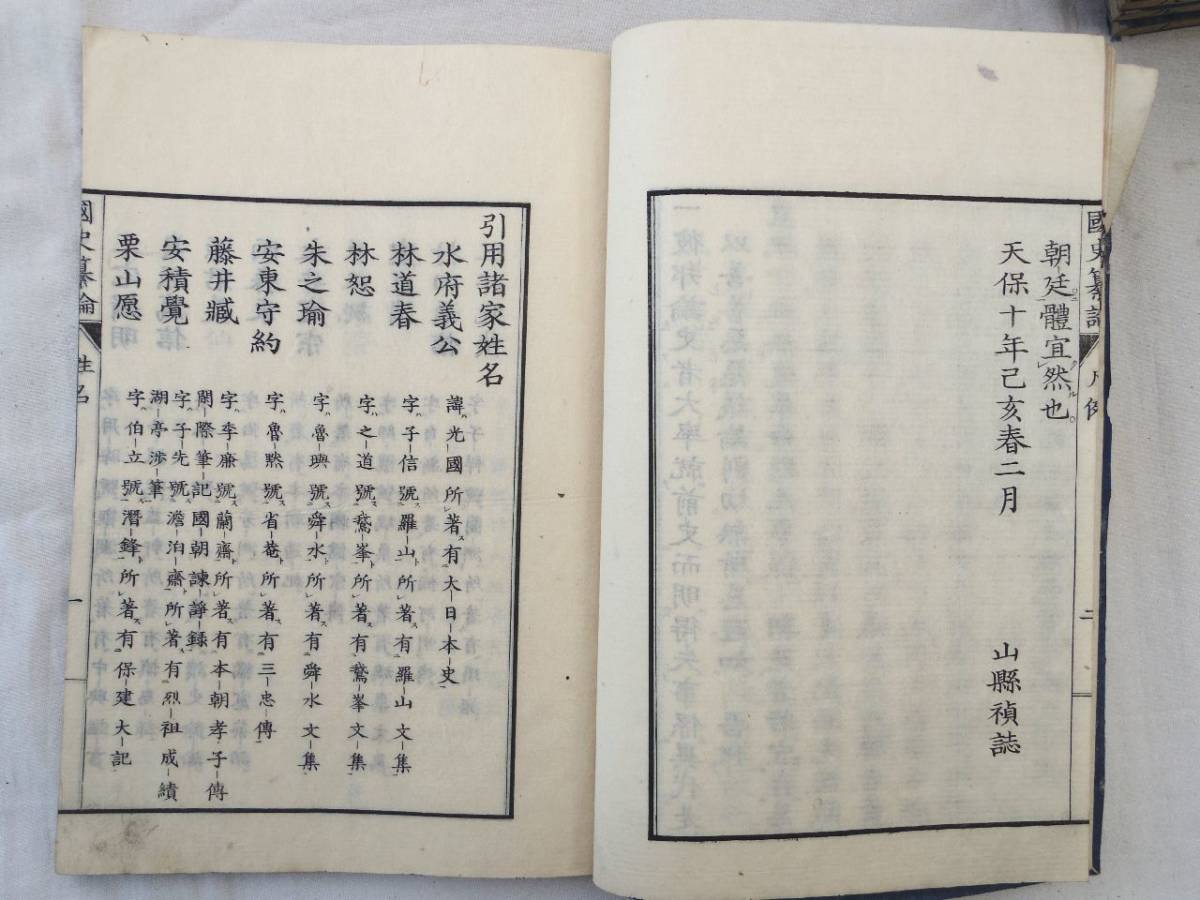 國史纂論
凡例
二
朝廷體宜然也
天保十年己亥春二月
山縣禎誌
引用諸家姓名
水府義公 諱光國所著有大日本史
林道春 字子信號羅山所著有羅山文集
林恕 字之道號鵞峯所著有鵞峯文集
朱之瑜 字魯璵號舜水所著有舜水文集
安東守約 字魯黙號省菴所著有三忠傳
藤井臧 字季廉號蘭齋所著有本朝孝子傳
閑際筆記國朝諫諍録
安積覺 字子先號澹泊齋所著有烈祖成績
湖亭渉筆
栗山愿 字伯立號潛鋒所著有保建大記
國史纂論
姓名
一